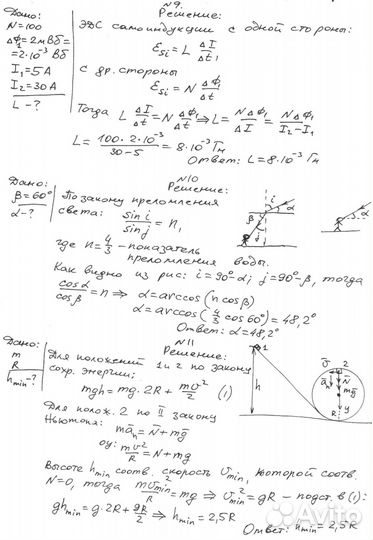 №9
Дано: Решение:
N=100
ΔΦ₁=2мВб=
=2·10⁻³Вб
I₁=5A
I₂=30A
L-?
ЭДС самоиндукции с одной стороны:
Ɛsi = L ΔI/Δt,
с др. стороны
Ɛsi = N ΔΦ₁/Δt
Тогда L ΔI/Δt = N ΔΦ₁/Δt ⇒ L = N ΔΦ₁/ΔI = NΔΦ₁/(I₂-I₁)
L = 100·2·10⁻³/(30-5) = 8·10⁻³ Гн
Ответ: L=8·10⁻³ Гн
№10
Дано: Решение:
β=60°
α-?
По закону преломления
света: sin i/sin j = n,
где n=4/3 - показатель
преломления воды.
α
β
i
j
α
Как видно из рис: i=90°-α; j=90°-β, тогда
cosα/cosβ = n ⇒ α=arccos(n cosβ)
α=arccos(4/3 cos60°)=48,2°
Ответ: α=48,2°
№11
Дано: Решение:
m
R
hmin-?
Для положений 1 и 2 по закону
сохр. энергии:
mgh=mg·2R+mυ²/2 (1)
Для полож. 2 по II закону
Ньютона: māₙ=N̄+mḡ
оу: mυ²/R=N+mg
1
h
ῡ 2
āₙ N̄
mḡ
R y
Высоте hmin соотв. скорость υmin, которой соотв.
N=0, тогда mυ²min/R=mg ⇒ υ²min=gR - подст. в (1):
ghmin=g·2R+gR/2 ⇒ hmin=2,5R
Ответ: hmin=2,5R
Avito